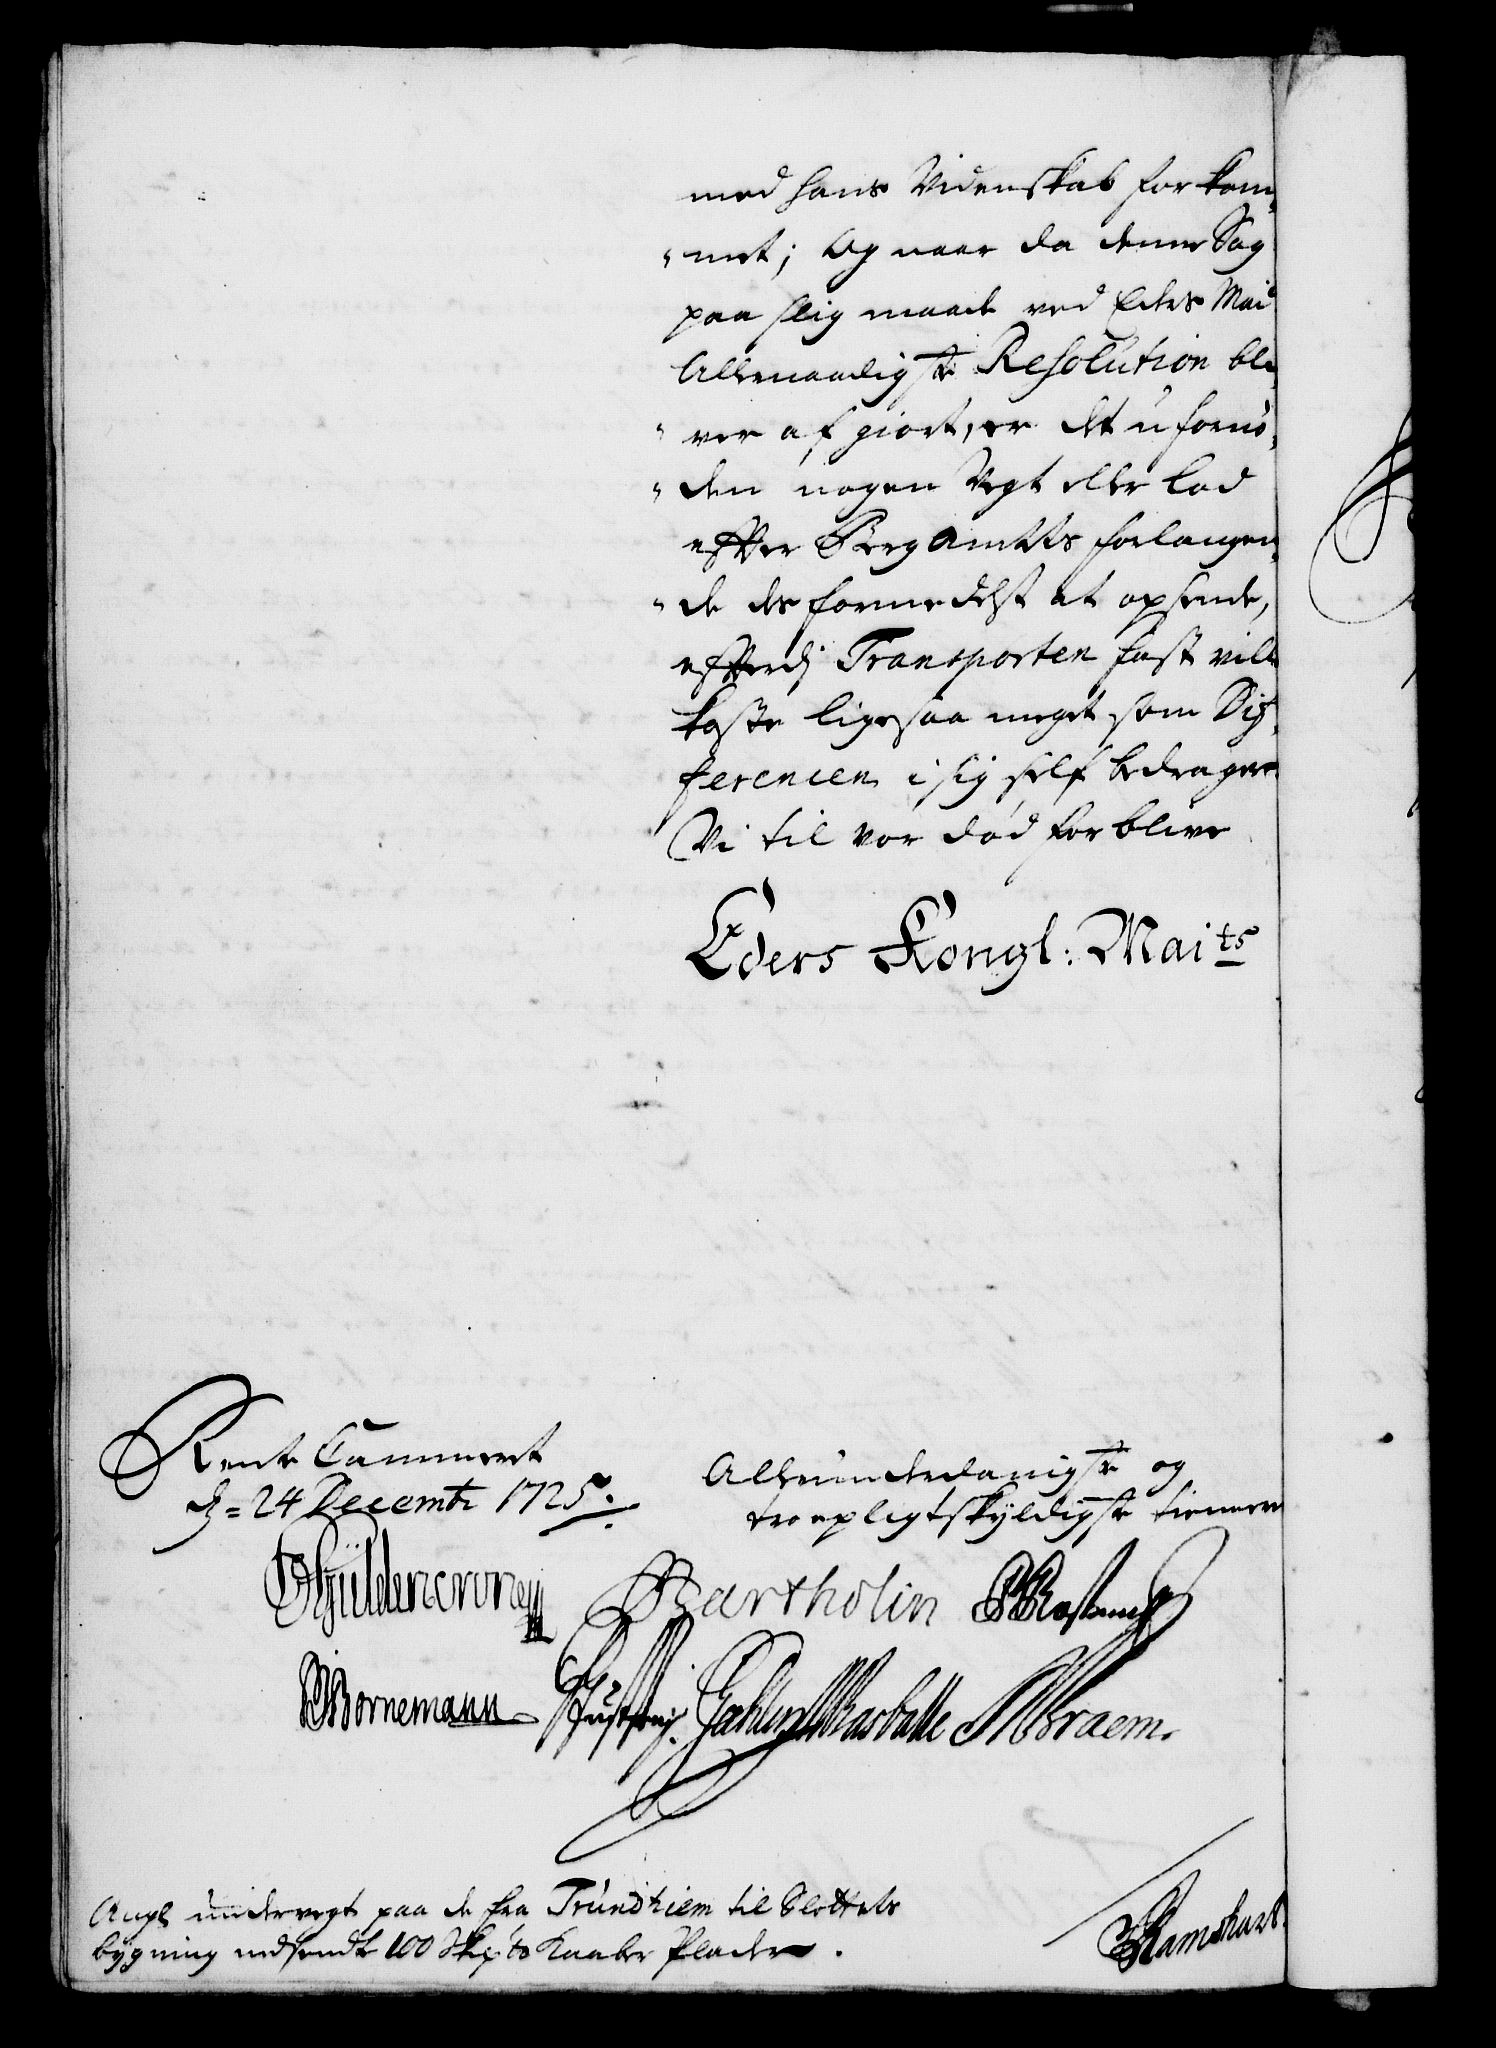 med hans Videnskab forkom,
"met; Og naar da denne Sag
paa slig maade ved Eders Mai
Allernaadigste Resolution bli
"ver afgiort, er det ufornö,
"den nogen Vegt eller Lod
efter BergAmtets forlangen,
"de desformedelst at opsende,
efterdj Transporten fast vill
koste ligesaa meget som Dif,
ferencen i sig self bedrager
Vi til vor död forblive
Eders Kongl: Maits
Rente Cammeret
d= 24 Decembr 1725.
Allerunderdanigste og
troepligtskyldigste tienere
Güldencrone
Bartholin
Bornemann
Braem.
Angl undervegt paa de fra Trundhiem til Slottets
bygning nedsendte 100 Skpd Kaaber Plader.
Ramshart